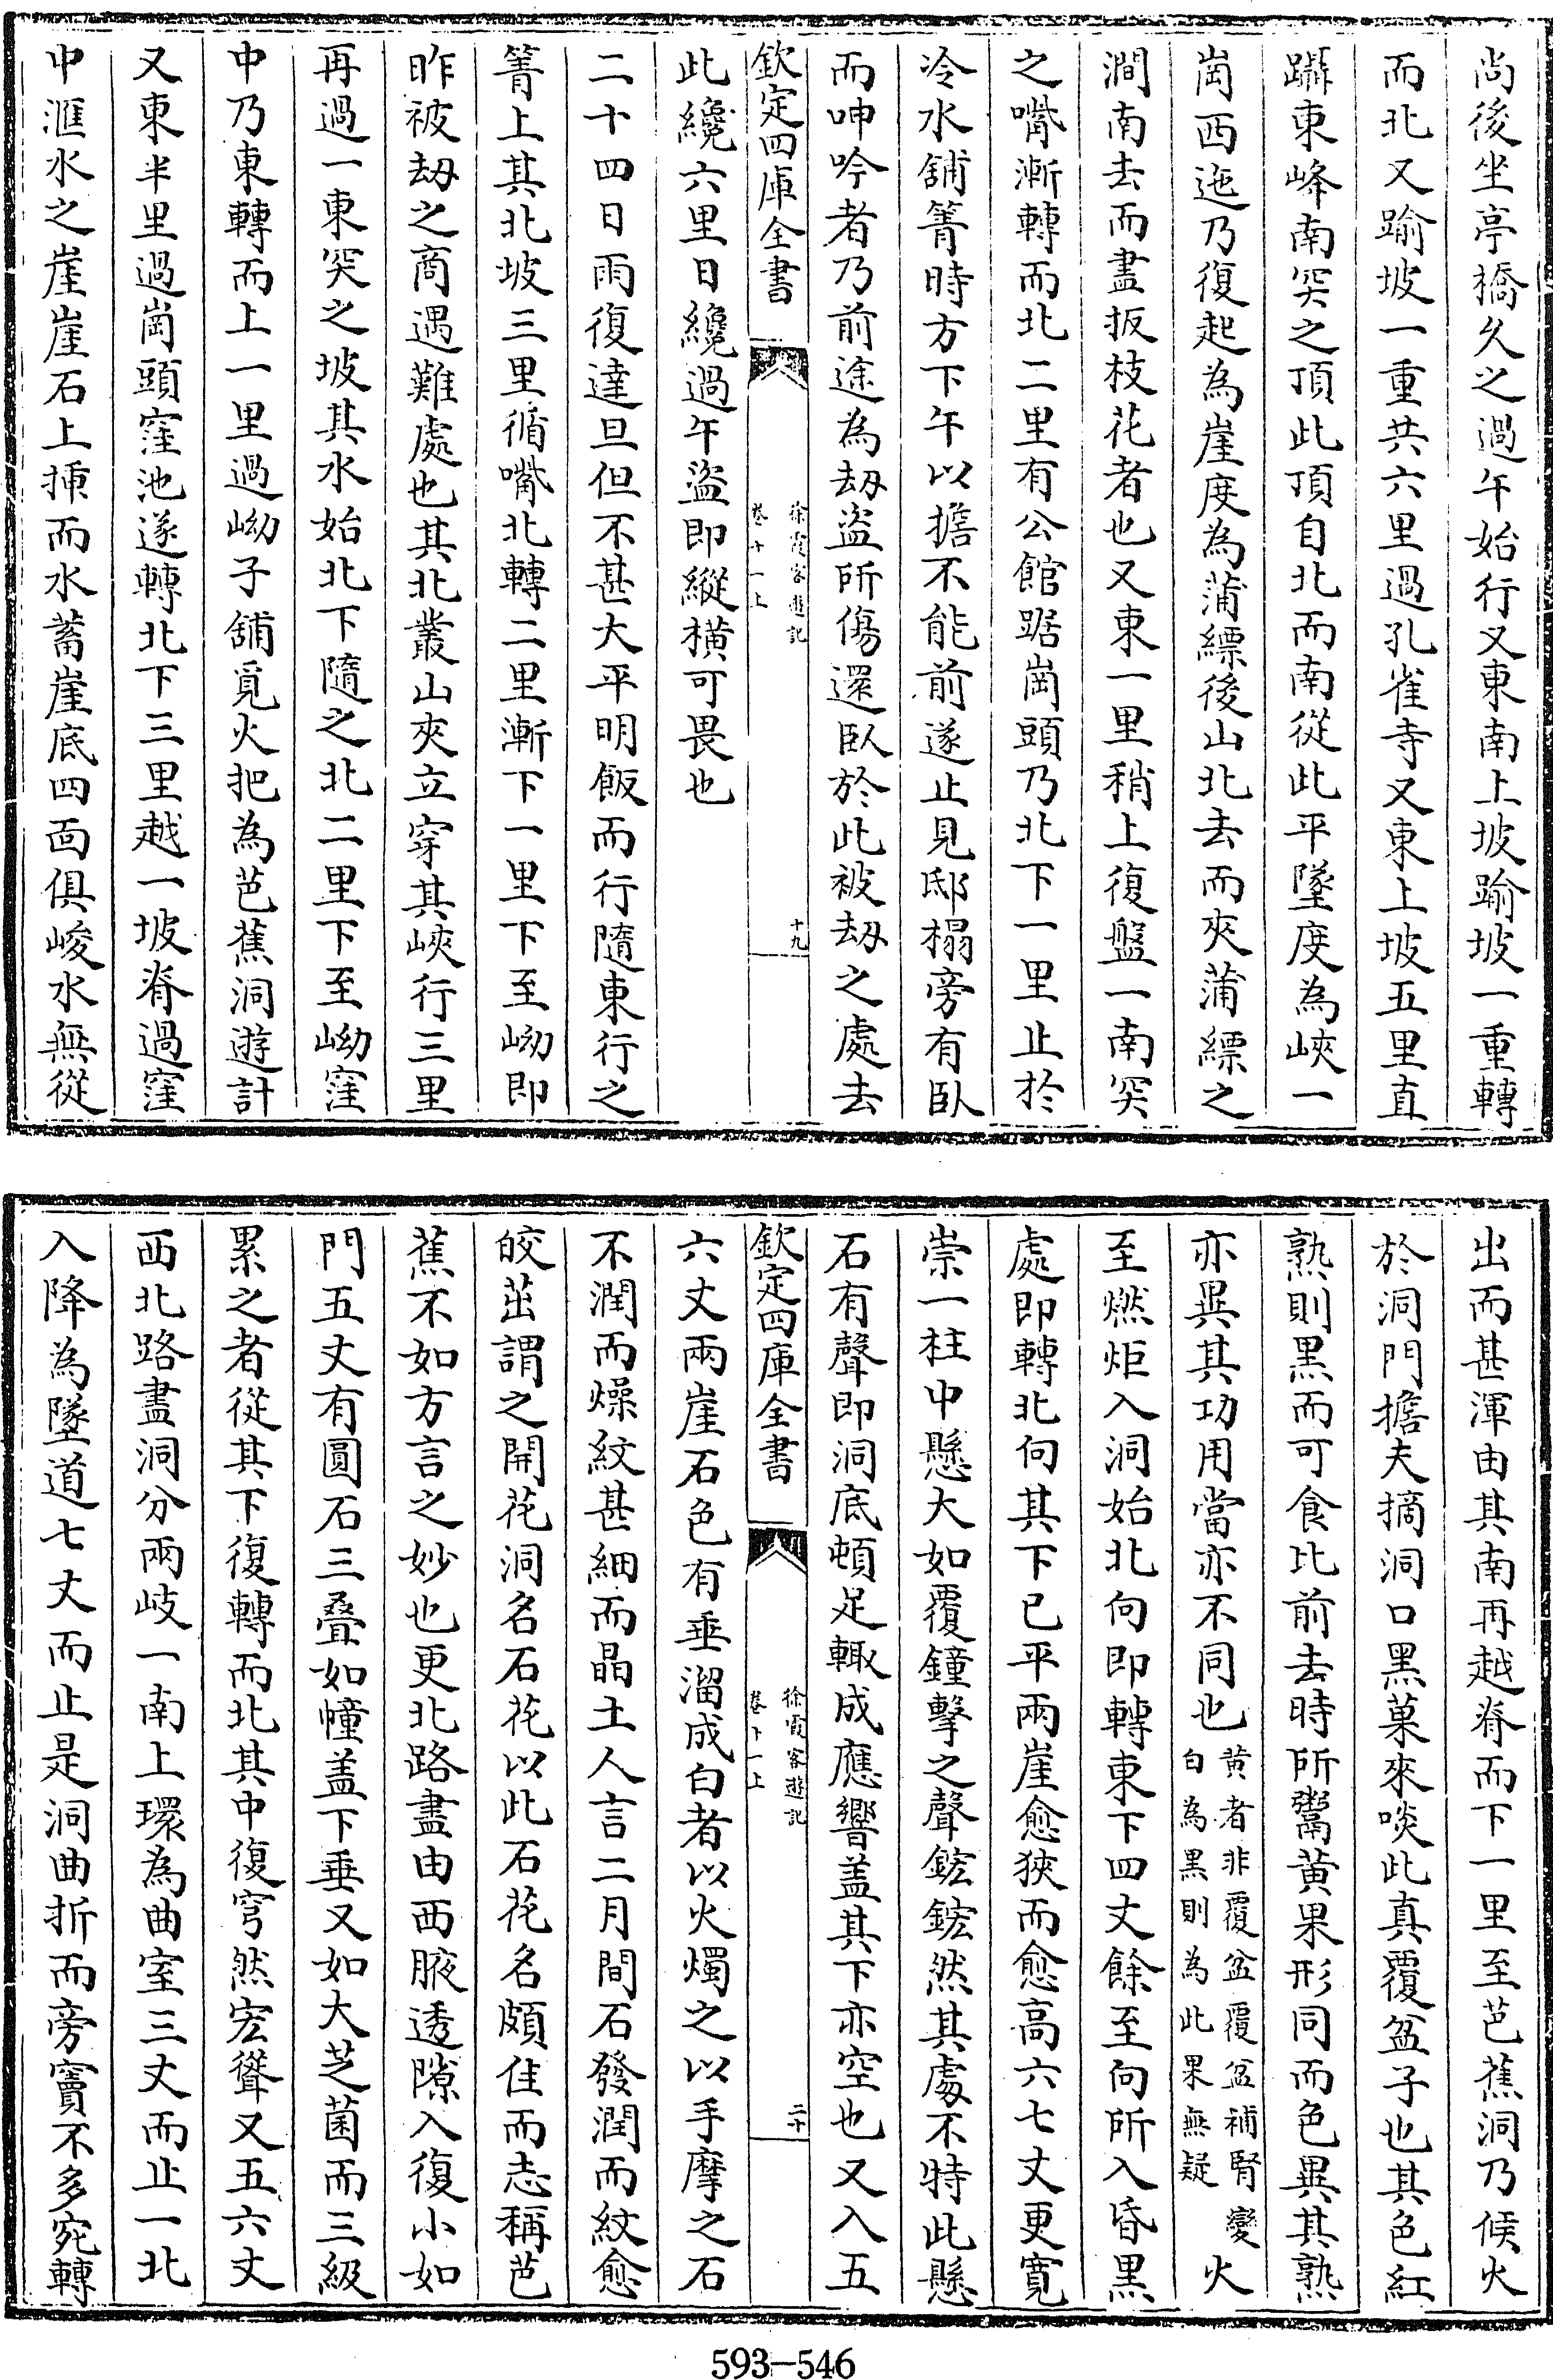 尚後坐亭橋久之過午始行又東南上坡踰坡一重轉
而北又踰坡一重共六里過孔雀寺又東上坡五里直
躡東峰南突之頂此頂自北而南從此平墜度為峽一
崗西迤乃復起為崖度為蒲縹後山北去而夾蒲縹之
澗南去而盡扳枝花者也又東一里稍上復盤一南突
之嘴漸轉而北二里有公館踞崗頭乃北下一里止於
冷水舖箐時方下午以擔不能前遂止見邸榻旁有臥
而呻吟者乃前途為刼盜所傷還臥於此被刼之處去
欽定四庫全書
徐霞客遊記
卷十一上
十九
此纔六里日纔過午盜即縱橫可畏也
二十四日雨復達旦但不甚大平明飯而行隨東行之
箐上其北坡三里循嘴北轉二里漸下一里下至坳即
昨被刼之商遇難處也其北叢山夾立穿其峽行三里
再過一東突之坡其水始北下隨之北二里下至坳窪
中乃東轉而上一里過坳子舖覓火把為芭蕉洞遊計
又東半里過崗頭窪池遂轉北下三里越一坡脊過窪
中滙水之崖崖石上揷而水蓄崖底四面俱峻水無從
出而甚渾由其南再越脊而下一里至芭蕉洞乃候火
於洞門擔夫摘洞口黑菓來啖此真覆盆子也其色紅
熟則黑而可食比前去時所鬻黃果形同而色異其熟
亦異其功用當亦不同也黃者非覆盆覆盆補腎變
白為黑則為此果無疑火
至燃炬入洞始北向即轉東下四丈餘至向所入昏黑
處即轉北向其下已平兩崖愈狹而愈高六七丈更寬
崇一柱中懸大如覆鐘擊之聲鋐鋐然其處不特此懸
石有聲即洞底頓足輙成應響盖其下亦空也又入五
欽定四庫全書
徐霞客遊記
卷十一上
二十
六丈兩崖石色有垂溜成白者以火燭之以手摩之石
不潤而燥紋甚細而晶土人言二月間石發潤而紋愈
皎茁謂之開花洞名石花以此石花名頗佳而志稱芭
蕉不如方言之妙也更北路盡由西腋透隙入復小如
門五丈有圓石三疊如幢盖下垂又如大芝菌而三級
累之者從其下復轉而北其中復穹然宏聳又五六丈
西北路盡洞分兩岐一南上環為曲室三丈而止一北
入降為墜道七丈而止是洞曲折而旁竇不多宛轉
593-546